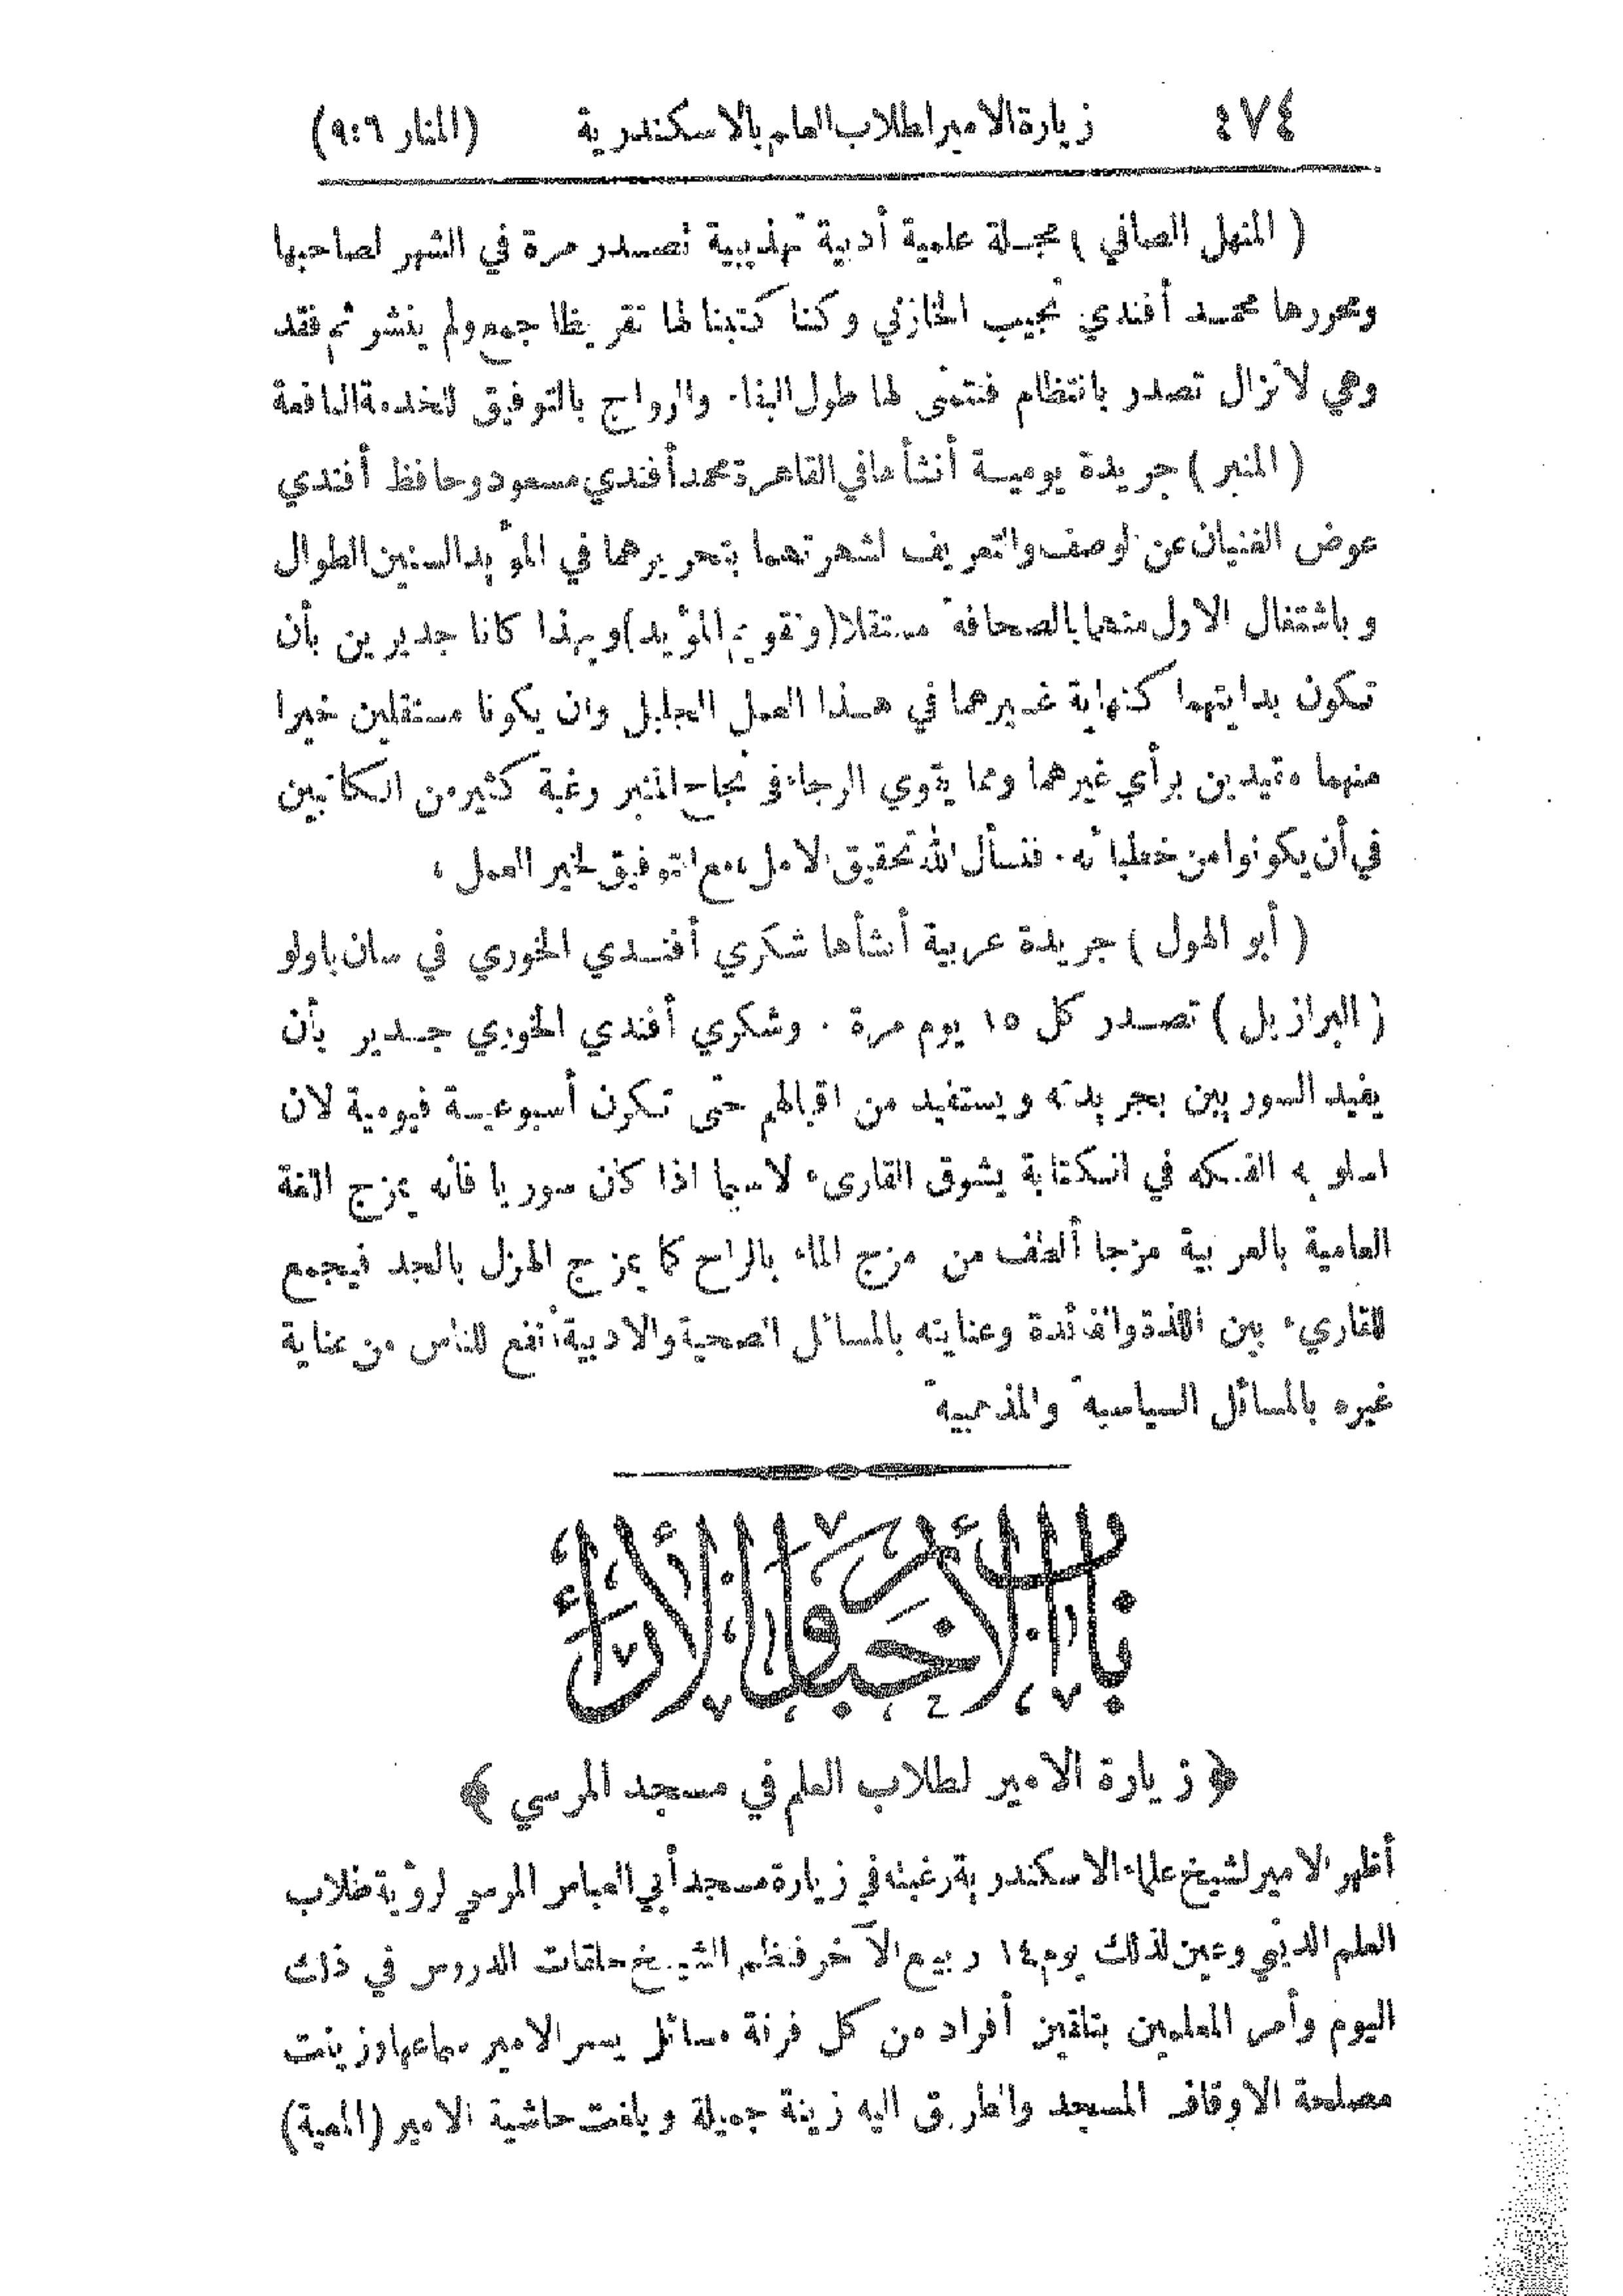 ٤٧٤ زيارة الامير لطلاب العلم بالاسكندرية (المنار ٦:٩)
( المنهل الصافي ) مجلة علمية أدبية تهذيبية تصدر مرة في الشهر لصاحبها
ومحررها محمد أفندي نجيب الخازني وكنا كتبنا لها تقريظا جمع ولم ينشر ثم فقد
وهي لا تزال تصدر بانتظام فنتمنى لها طول البقاء والرواج بالتوفيق للخدمة النافعة
( المنبر ) جريدة يومية أنشأها في القاهرة محمد أفندي مسعود وحافظ أفندي
عوض الغنيان عن الوصف والتعريف لشهرتهما بتحريرهما في المؤيد السنين الطوال
وباشتغال الاول منهما بالصحافة مستقلا (وتقويم المؤيد) وبهذا كانا جديرين بأن
تكون بدايتهما كنهاية غيرهما في هذا العمل الجليل وان يكونا مستقلين خيرا
منهما مقيدين برأي غيرهما ومما يقوي الرجاء في نجاح المنبر رغبة كثير من الكاتبين
في أن يكونوا من خطبائه . فنسأل الله تحقيق الامل، مع التوفيق لخير العمل ،
( أبو الهول ) جريدة عربية أنشأها شكري أفندي الخوري في سان باولو
( البرازيل ) تصدر كل ١٥ يوم مرة . وشكري أفندي الخوري جدير بأن
يفيد السوريين بجريدته ويستفيد من اقبالهم حتى تكون أسبوعية فيومية لان
اسلوبه الفكه في الكتابة يشوق القارىء لا سيما اذا كان سوريا فانه يمزج اللغة
العامية بالعربية مزجا ألطف من مزج الماء بالراح كما يمزج الهزل بالجد فيجمع
للقاريء بين اللذة والفائدة وعنايته بالمسائل الصحية والادبية أنفع للناس من عناية
غيره بالمسائل السياسية والمذهبية
باب الأخبار والآراء
﴿ زيارة الامير لطلاب العلم في مسجد المرسي ﴾
أظهر الامير لشيخ علماء الاسكندرية رغبته في زيارة مسجد أبي العباس المرسي لرؤية طلاب
العلم الديني وعين لذلك يوم ١٤ ربيع الآخر فنظم الشيخ حلقات الدروس في ذلك
اليوم وأمر المعلمين بتلقين أفراد من كل فرقة مسائل يسر الامير سماعها وزينت
مصلحة الاوقاف المسجد والطريق اليه زينة جميلة وبلغت حاشية الامير (المعية)